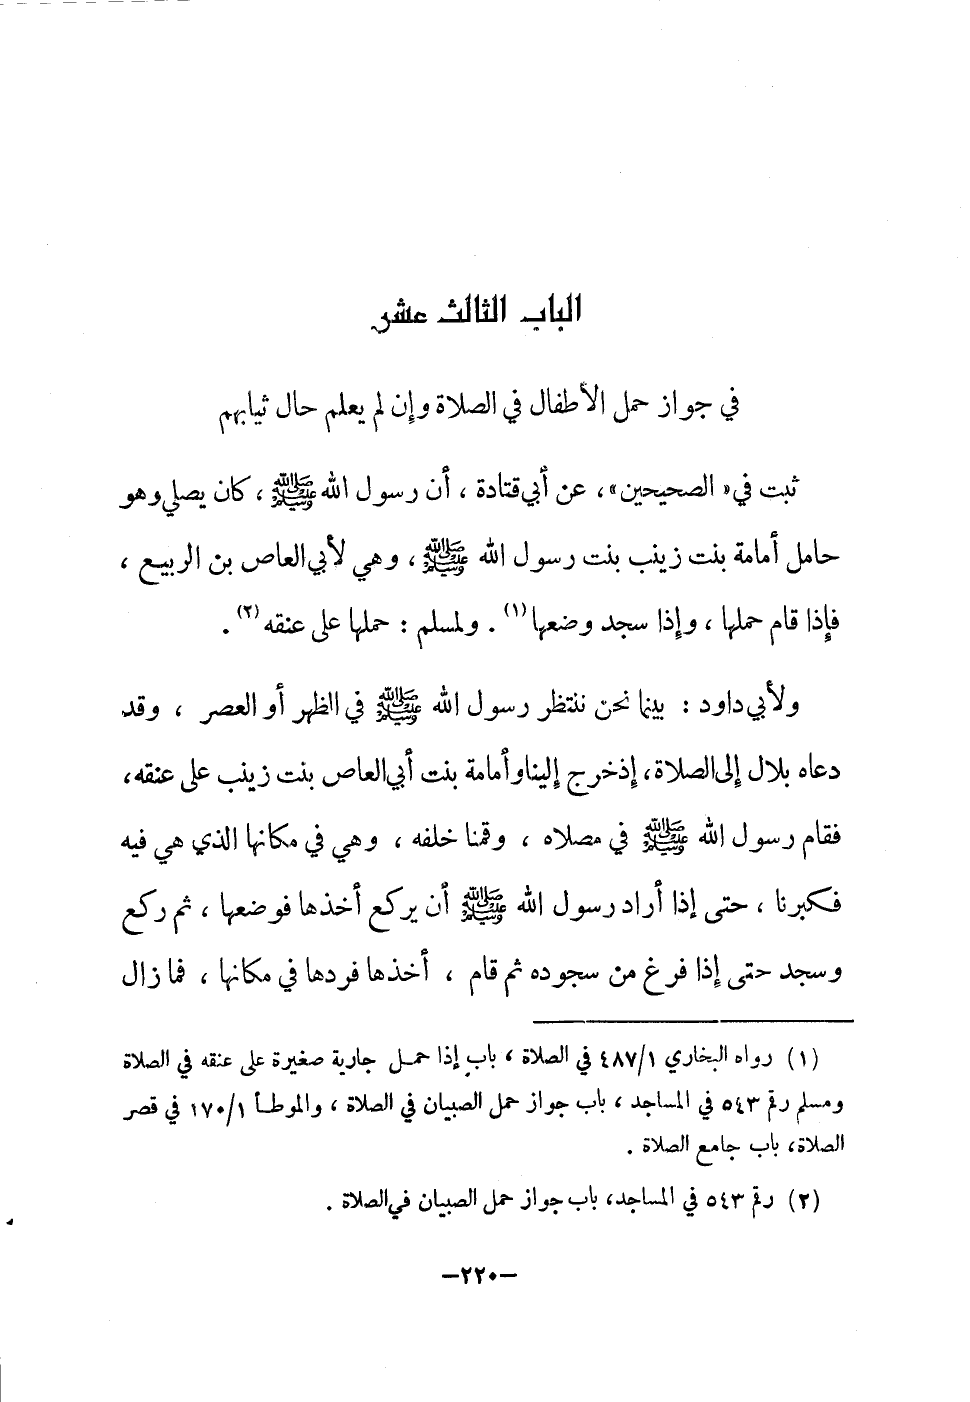 الباب الثالث عشر
في جواز حمل الأطفال في الصلاة وإن لم يعلم حال ثيابهم
ثبت في « الصحيحين » ، عن أبي قتادة ، أن رسول الله ﷺ ، كان يصلي وهو
حامل أمامة بنت زينب بنت رسول الله ﷺ ، وهي لأبي العاص بن الربيع ،
فإذا قام حملها ، وإذا سجد وضعها (١) . ولمسلم : حملها على عنقه (٢) .
ولأبي داود : بينما نحن ننتظر رسول الله ﷺ في الظهر أو العصر ، وقد
دعاه بلال إلى الصلاة ، إذ خرج إلينا وأمامة بنت أبي العاص بنت زينب على عنقه ،
فقام رسول الله ﷺ في مصلاه ، وقمنا خلفه ، وهي في مكانها الذي هي فيه
فكبرنا ، حتى إذا أراد رسول الله ﷺ أن يركع أخذها فوضعها ، ثم ركع
وسجد حتى إذا فرغ من سجوده ثم قام ، أخذها فردها في مكانها ، فما زال
(١) رواه البخاري ٤٨٧/١ في الصلاة ، باب إذا حمل جارية صغيرة على عنقه في الصلاة
ومسلم رقم ٥٤٣ في المساجد ، باب جواز حمل الصبيان في الصلاة ، والموطأ ١٧٠/١ في قصر
الصلاة ، باب جامع الصلاة .
(٢) رقم ٥٤٣ في المساجد ، باب جواز حمل الصبيان في الصلاة .
-٢٢٠-